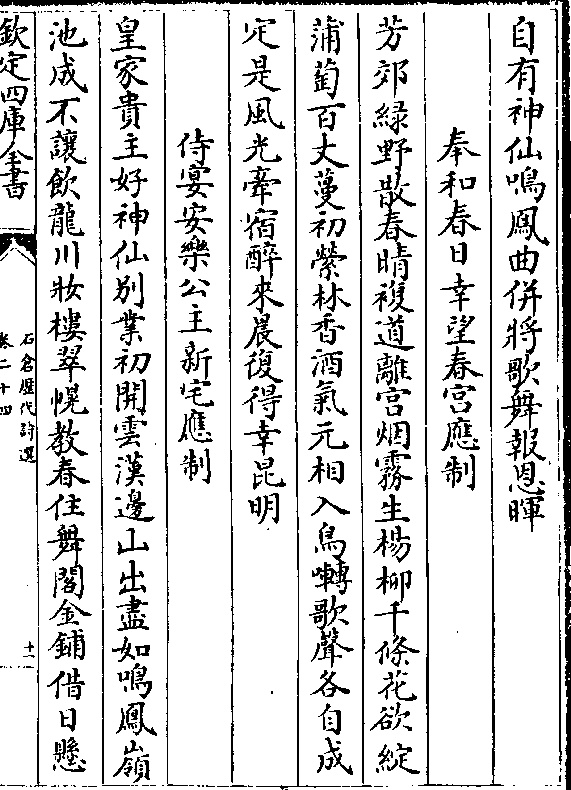 自有神仙鳴鳳曲併將歌舞報恩暉
奉和春日幸望春宮應制
芳郊綠野散春晴複道離宮烟霧生楊柳千條花欲綻
蒲萄百丈蔓初縈林香酒氣元相入鳥囀歌聲各自成
定是風光牽宿醉來晨復得幸昆明
侍宴安樂公主新宅應制
皇家貴主好神仙別業初開雲漢邊山出盡如鳴鳳嶺
池成不讓飲龍川妝樓翠幌教春住舞閣金鋪借日懸
欽定四庫全書
石倉歷代詩選
卷二十四
十二